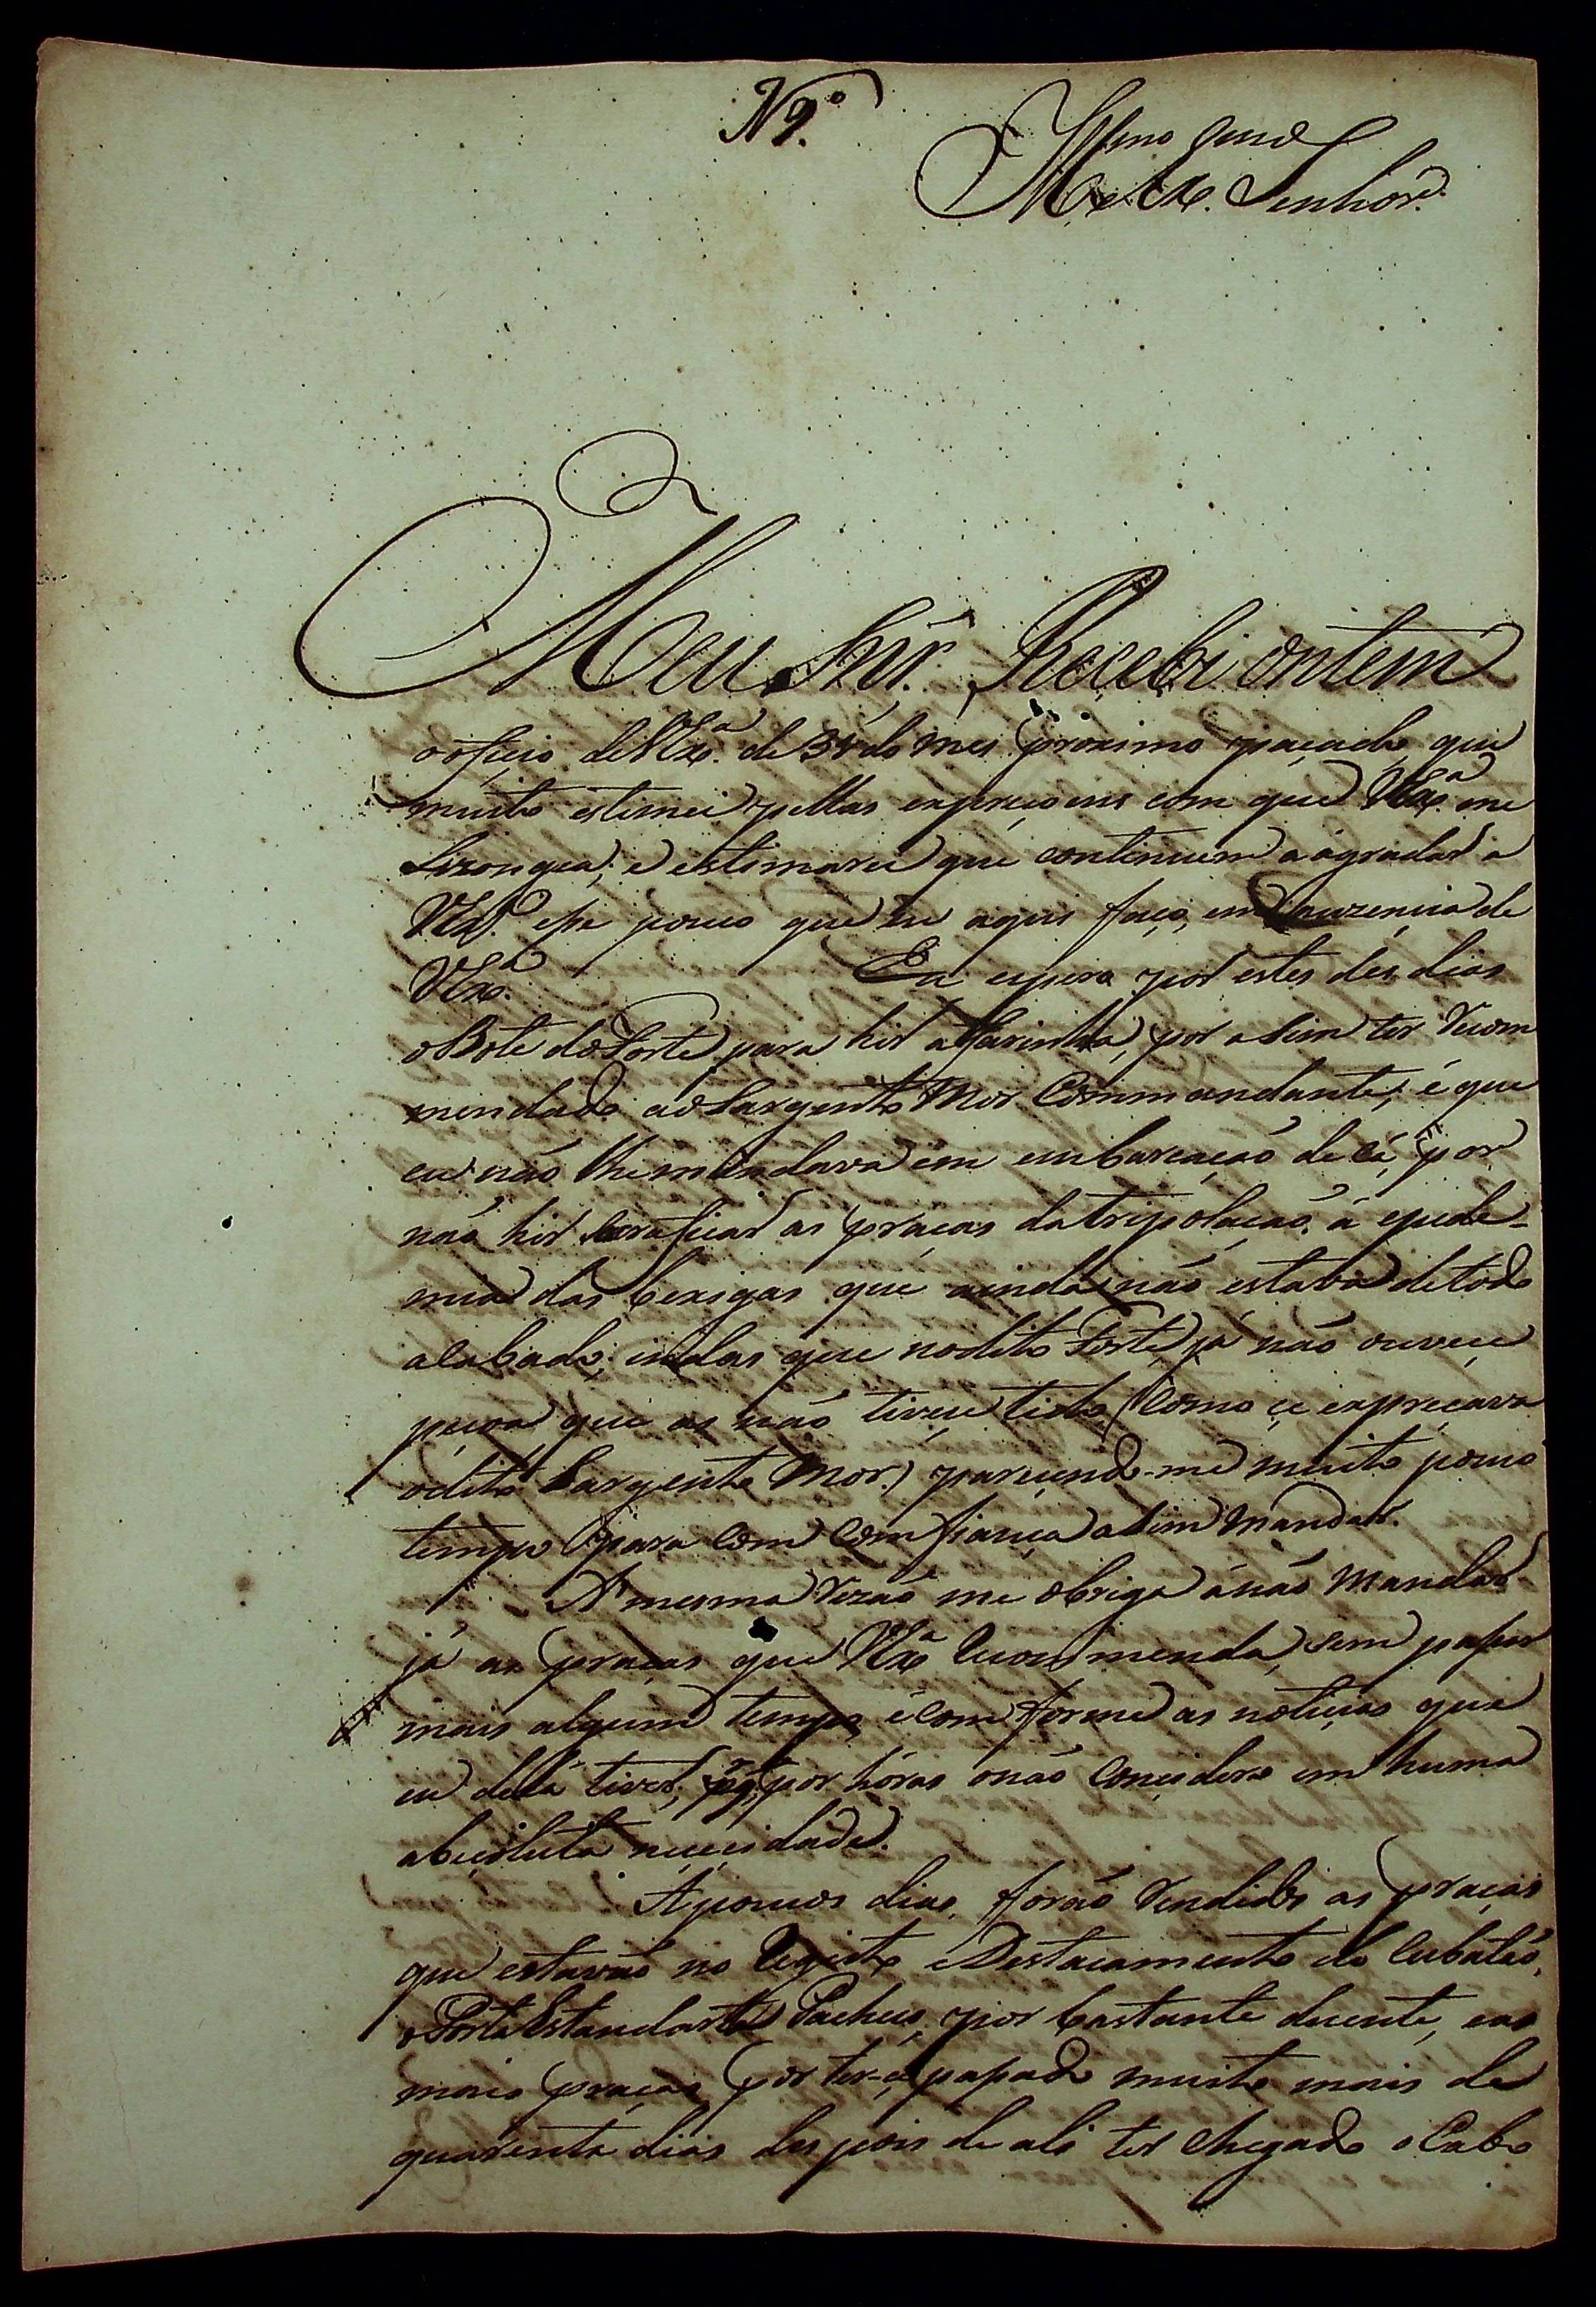 N 9.º
Illmo e Exmo
Senhor.
Meu Snr. Recebi ontem
o oficio de VExª de 31 do mes proximo paçado, que
muito estimei pellas expreçoens com que VExª me
Lizongea; e estimarei que continuem a agradar a
VExª esse pouco que eu aqui faço, em auzencia de
VExª Eu espero por estes des dias
o Bote do Forte para hir a Farinha, por asim ter recom
mendado ao Sargento Mor Commandante; é que
eu não lhe mandava em embarcação de cá, por
não hir as praças da tripolação á epide-
mia das bexigas que ainda não estava de todo
acabada; indas que no dito Forte já não ouveçe
peçoa que as não tiveçe tido (como çe expreçava
o dito Sargento Mor.) pareçendo-me muito pouco
tempo para com comfiança asim mandar.
A mesma rezaõ me obriga á não mandar
já as praças que VExª recommenda, sem pasar
mais algum tempo, e comforme as noticias que
eu de lá tiver; por hóras o não conçidero em huma
abçoluta neçeçidade.
Á poucos dias, foraõ rendidos as praças
que estavaõ no Registo e Destacamento do Cubataõ,
o Porta Estandarte Pacheco, por bastante doente, e as
mais praças por ter-çe pasado muito mais de
quarenta dias des pois de ali ter chegado o Cabo